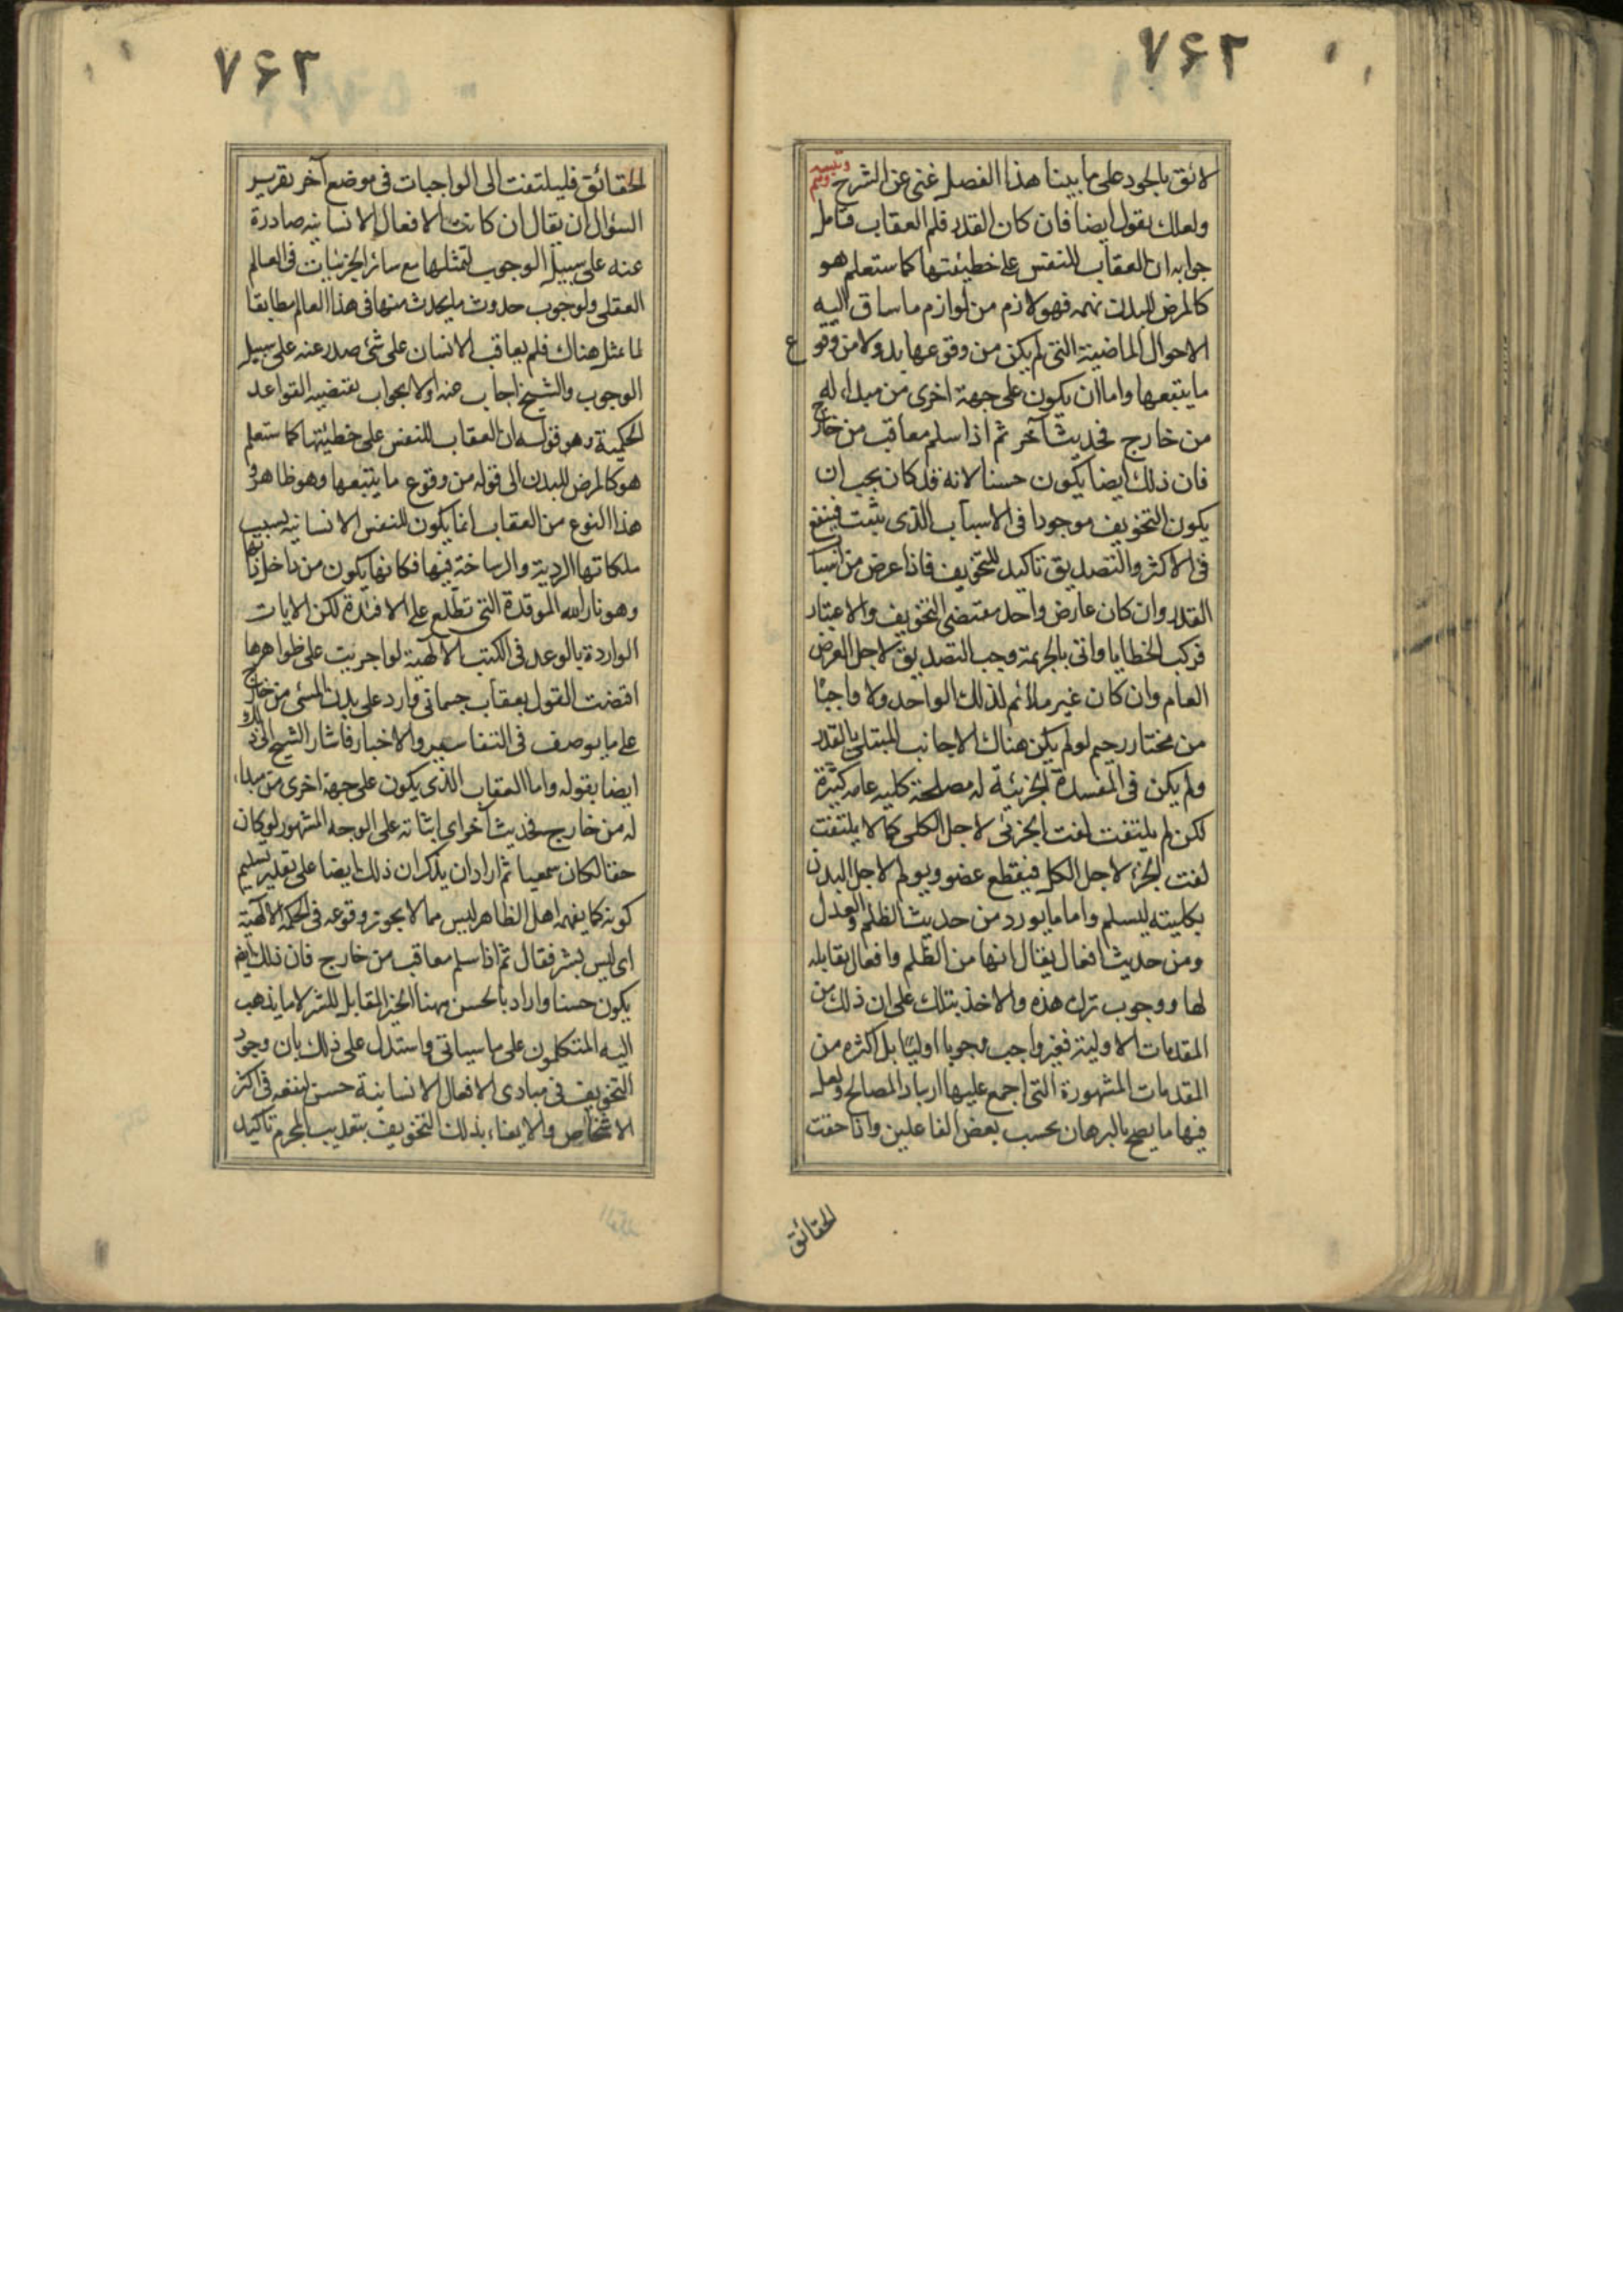 ۷۶۲
لائق بالجود على ما بينا هذا الفصل غنى عن الشرح وهم وتنبيه
ولعلك يقول ايضا فان كان القدر فلم العقاب فتامل
جوابه ان العقاب للنفس على خطيئتها كما ستعلم هو
كالمرض للبدن نهمه فهو لازم من لوازم ما ساق اليه
الاحوال الماضية التى لم يكن من وقوعها بد ولا من وقوع
ما يتبعها واما ان يكون على جهة اخرى من مبداء له
من خارج فحديث آخر ثم اذا سلم معاقب من خارج
فان ذلك ايضا يكون حسنا لانه قد كان يجب ان
يكون التخويف موجودا فى الاسباب الذى يثبت فينفع
فى الاكثر والتصديق تاكيد للتخويف فاذا عرض من اسباب
القدر وان كان عارض واحد مقتضى التخويف والاعتبار
فركب الخطايا واتى بالجريمة وجب التصديق لاجل الغرض
العام وان كان غير ملائم لذلك الواحد ولا واجبا
من مختار رحيم لو لم يكن هناك الا جانب المبتلى بالقدر
ولم يكن فى المفسدة الجزئية له مصلحة كلية عامه كثيرة
لكن لم يلتفت لفت الجزئى لاجل الكلى كما لا يلتفت
لفت الجزء لاجل الكل فيقطع عضو ويولم لاجل البدن
بكليته ليسلم واما ما يورد من حديث الظلم والعدل
ومن حديث افعال يقال انها من الظلم وافعال يقابله
لها ووجوب ترك هذه والاخذ بتلك على ان ذلك من
المقدمات الاولية فغير واجب وجوبا اوليا بل اكثره من
المقدمات المشهورة التى اجمع عليها ارباب المصالح ولعل
فيها ما يصح بالبرهان بحسب بعض الفاعلين واذا حققت
الحقائق
۷۶۳
الحقائق فليلتفت الى الواجبات فى موضع آخر تقرير
السؤال ان يقال ان كانت الافعال الانسانيه صادرة
عنه على سبيل الوجوب لتمثلها مع سائر الجزئيات فى العالم
العقلى ولوجوب حدوث ما يحدث منها فى هذا العالم مطابقا
لما تمثل هناك فلم يعاقب الانسان على شئ صدر عنه على سبيل
الوجوب والشيخ اجاب عنه اولا بجواب يقتضيه القواعد
الحكمية وهو قوله ان العقاب للنفس على خطيئتها كما ستعلم
هو كالمرض للبدن الى قوله من وقوع ما يتبعها وهو ظاهر و
هذا النوع من العقاب انما يكون للنفس الانسانيه بسبب
ملكاتها الردية والراسخة فيها فكانها يكون من داخل ذاتها
وهو نار الله الموقدة التى تطلع على الافئدة لكن الايات
الواردة بالوعد فى الكتب الالهية لو اجريت على ظواهرها
اقتضت القول بعقاب جسمانى وارد على بدن المسئ من خارج
على ما يوصف فى التفاسير والاخبار فاشار الشيخ الى ذلك
ايضا بقوله واما العقاب الذى يكون على جهة اخرى من مبداء
له من خارج فحديث آخر اى اثباته على الوجه المشهور لو كان
حقا لكان سمعيا ثم اراد ان يذكر ان ذلك ايضا على تقدير تسليم
كونه كما يفهمه اهل الظاهر ليس مما لا يجوز وقوعه فى الحكمة الالهية
اى ليس بشر فقال ثم اذا سلم معاقب من خارج فان ذلك ايضا
يكون حسنا واراد بالحسن ههنا الخير المقابل للشر لا ما يذهب
اليه المتكلمون على ما سياتى واستدل على ذلك بان وجود
التخويف فى مبادى الافعال الانسانية حسن لنفعه فى اكثر
الاشخاص والايفاء بذلك التخويف بتعذيب المجرم تاكيد